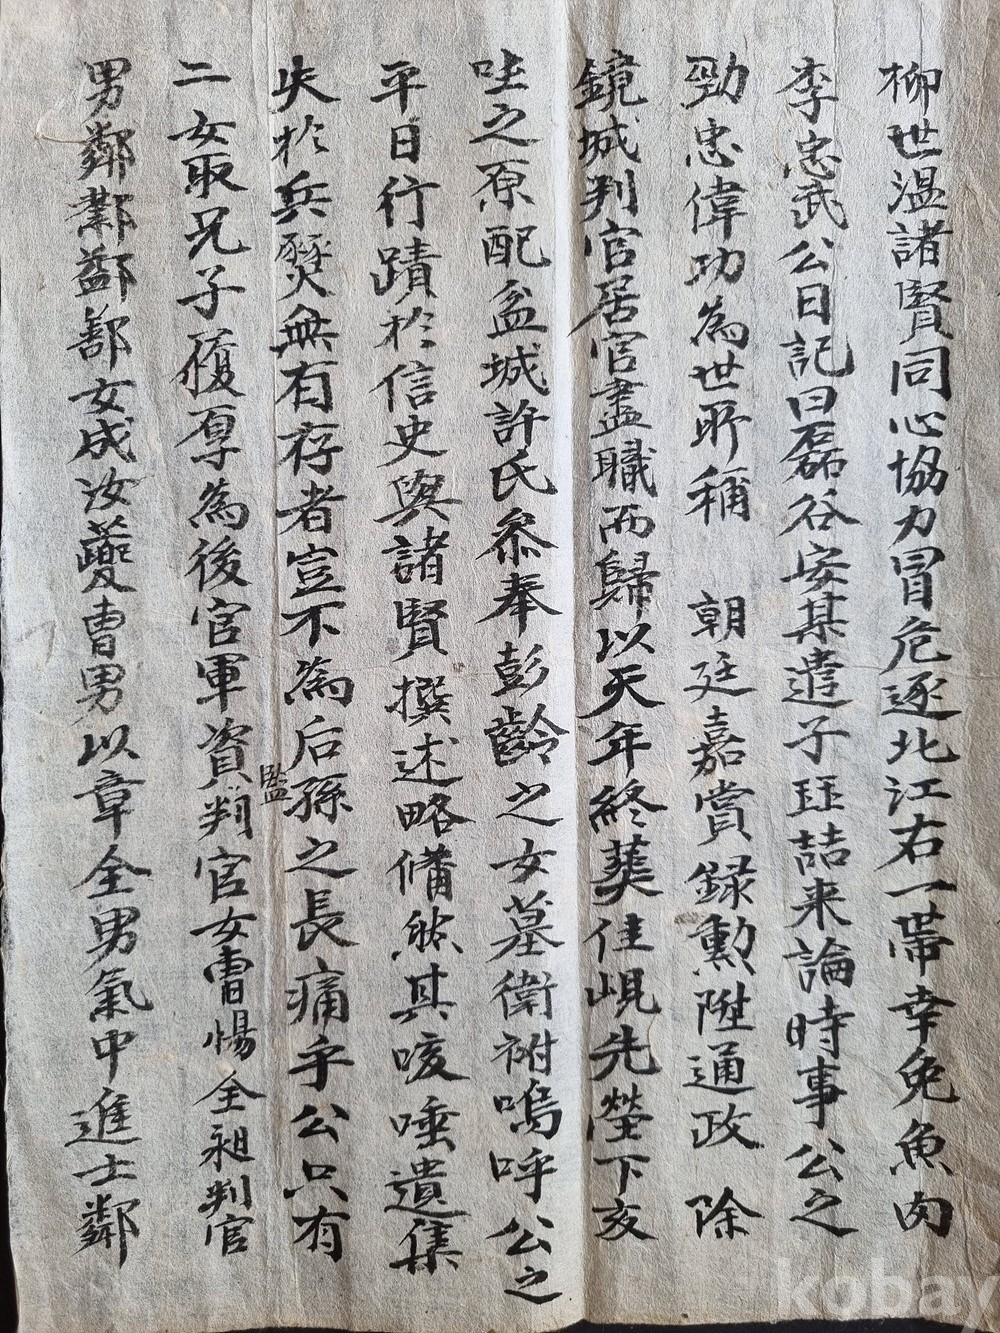 柳世温諸賢同心協力冒危逐北江右一帶幸免魚肉
李忠武公日記曰磊谷安某遣子珏喆来論時事公之
勁忠偉功為世所稱 朝廷嘉賞録勳陞通政 除
鏡城判官居官盡職而歸以天年終葬佳峴先塋下亥
坐之原配盆城許氏叅奉彭齡之女墓衛祔嗚呼公之
平日行蹟於信史與諸賢撰述略備然其咳唾遺集
失於兵燹無有存者豈不為后孫之長痛乎公只有
二女取兄子復厚為後官軍資監判官女曹惕全昶判官
男鄰鄴鄙鄯女成汝夔曹男以章全男氣中進士鄰
kobay